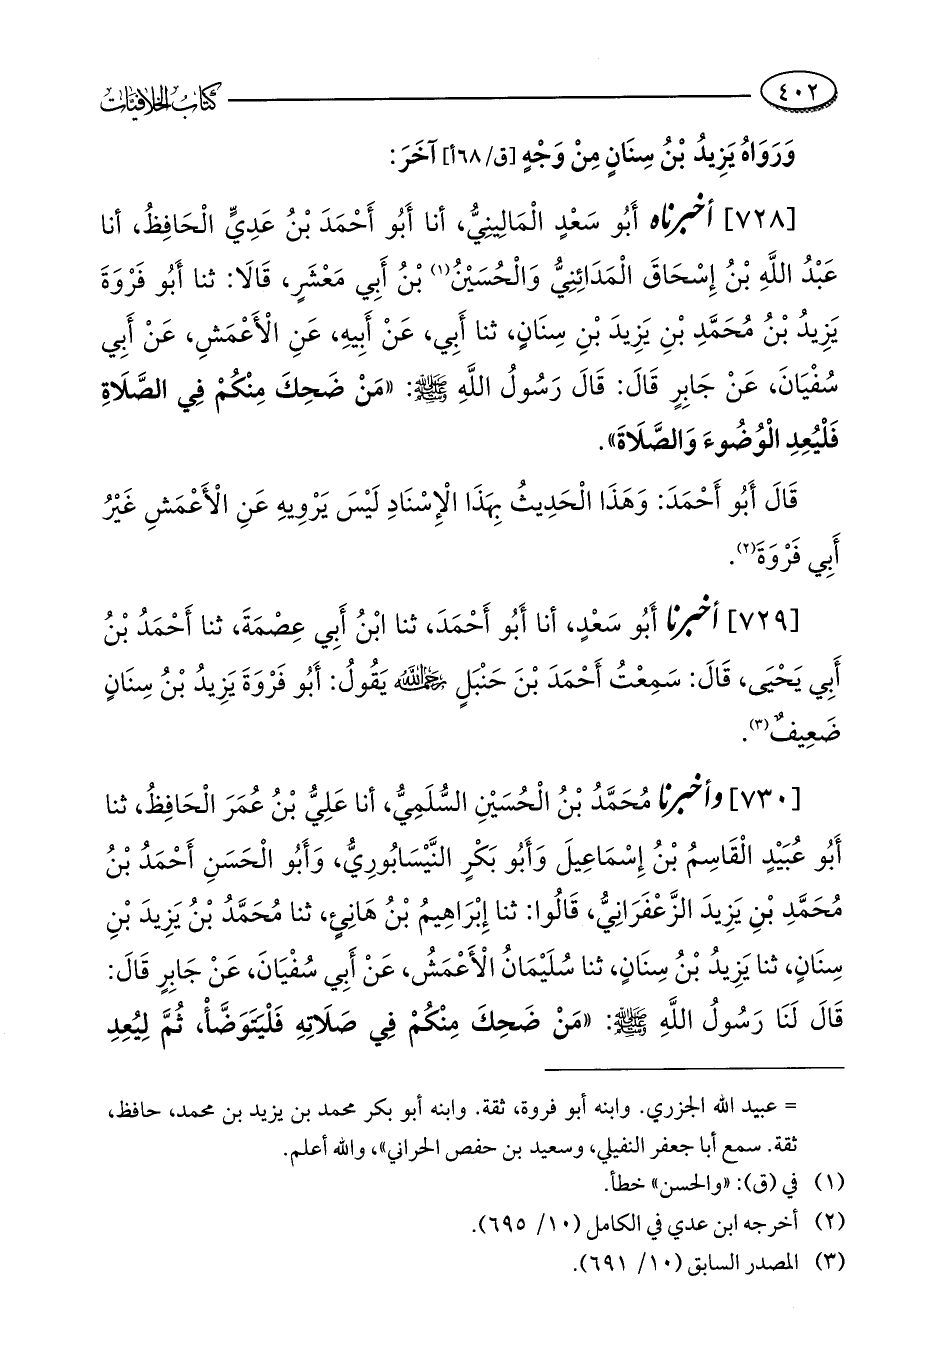 ٤٠٢ كتاب الخلافيات
وَرَوَاهُ يَزِيدُ بْنُ سِنَانٍ مِنْ وَجْهٍ [ق/٦٨أ] آخَرَ:
[٧٢٨] أخبرناه أَبُو سَعْدٍ الْمَالِينِيُّ، أنا أَبُو أَحْمَدَ بْنُ عَدِيٍّ الْحَافِظُ، أنا
عَبْدُ اللَّهِ بْنُ إِسْحَاقَ الْمَدَائِنِيُّ وَالْحُسَيْنُ(١) بْنُ أَبِي مَعْشَرٍ، قَالَا: ثنا أَبُو فَرْوَةَ
يَزِيدُ بْنُ مُحَمَّدِ بْنِ يَزِيدَ بْنِ سِنَانٍ، ثنا أَبِي، عَنْ أَبِيهِ، عَنِ الْأَعْمَشِ، عَنْ أَبِي
سُفْيَانَ، عَنْ جَابِرٍ قَالَ: قَالَ رَسُولُ اللَّهِ ﷺ: «مَنْ ضَحِكَ مِنْكُمْ فِي الصَّلَاةِ
فَلْيُعِدِ الْوُضُوءَ وَالصَّلَاةَ».
قَالَ أَبُو أَحْمَدَ: وَهَذَا الْحَدِيثُ بِهَذَا الْإِسْنَادِ لَيْسَ يَرْوِيهِ عَنِ الْأَعْمَشِ غَيْرُ
أَبِي فَرْوَةَ(٢).
[٧٢٩] أخبرنا أَبُو سَعْدٍ، أنا أَبُو أَحْمَدَ، ثنا ابْنُ أَبِي عِصْمَةَ، ثنا أَحْمَدُ بْنُ
أَبِي يَحْيَى، قَالَ: سَمِعْتُ أَحْمَدَ بْنَ حَنْبَلٍ رَحِمَهُ اللَّهُ يَقُولُ: أَبُو فَرْوَةَ يَزِيدُ بْنُ سِنَانٍ
ضَعِيفٌ(٣).
[٧٣٠] وأخبرنا مُحَمَّدُ بْنُ الْحُسَيْنِ السُّلَمِيُّ، أنا عَلِيُّ بْنُ عُمَرَ الْحَافِظُ، ثنا
أَبُو عُبَيْدٍ الْقَاسِمُ بْنُ إِسْمَاعِيلَ وَأَبُو بَكْرٍ النَّيْسَابُورِيُّ، وَأَبُو الْحَسَنِ أَحْمَدُ بْنُ
مُحَمَّدِ بْنِ يَزِيدَ الزَّعْفَرَانِيُّ، قَالُوا: ثنا إِبْرَاهِيمُ بْنُ هَانِئٍ، ثنا مُحَمَّدُ بْنُ يَزِيدَ بْنِ
سِنَانٍ، ثنا يَزِيدُ بْنُ سِنَانٍ، ثنا سُلَيْمَانُ الْأَعْمَشُ، عَنْ أَبِي سُفْيَانَ، عَنْ جَابِرٍ قَالَ:
قَالَ لَنَا رَسُولُ اللَّهِ ﷺ: «مَنْ ضَحِكَ مِنْكُمْ فِي صَلَاتِهِ فَلْيَتَوَضَّأْ، ثُمَّ لِيُعِدِ
= عبيد الله الجزري. وابنه أبو فروة، ثقة. وابنه أبو بكر محمد بن يزيد بن محمد، حافظ،
ثقة. سمع أبا جعفر النفيلي، وسعيد بن حفص الحراني»، والله أعلم.
(١) في (ق): «والحسن» خطأ.
(٢) أخرجه ابن عدي في الكامل (١٠/ ٦٩٥).
(٣) المصدر السابق (١٠/ ٦٩١).